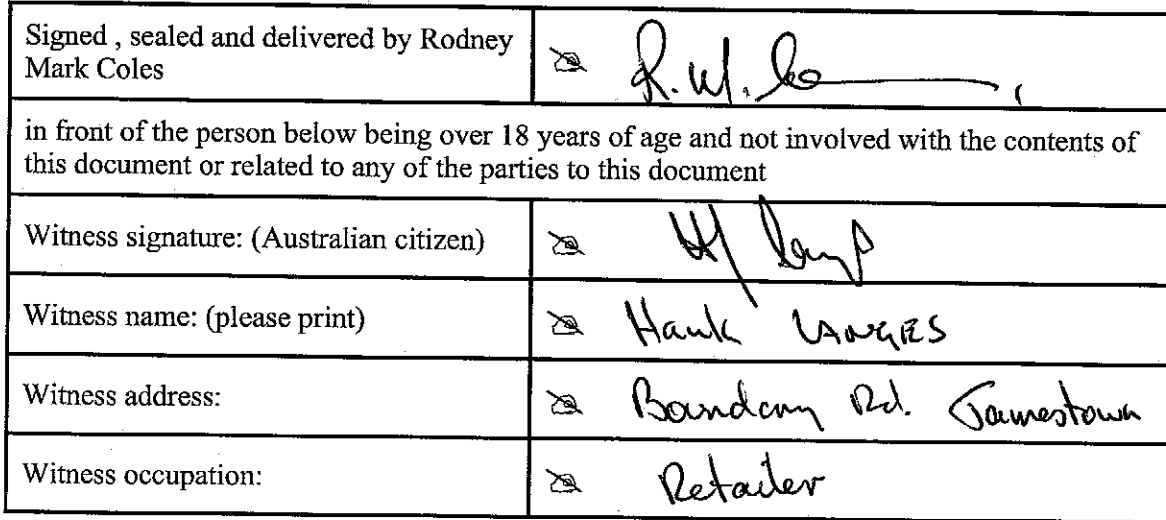 Signed , sealed and delivered by Rodney
Mark Coles
R. M. Co
in front of the person below being over 18 years of age and not involved with the contents of
this document or related to any of the parties to this document
Witness signature: (Australian citizen)
Witness name: (please print)
Hank LANGES
Witness address:
Boundary Rd. Jamestown
Witness occupation:
Retailer